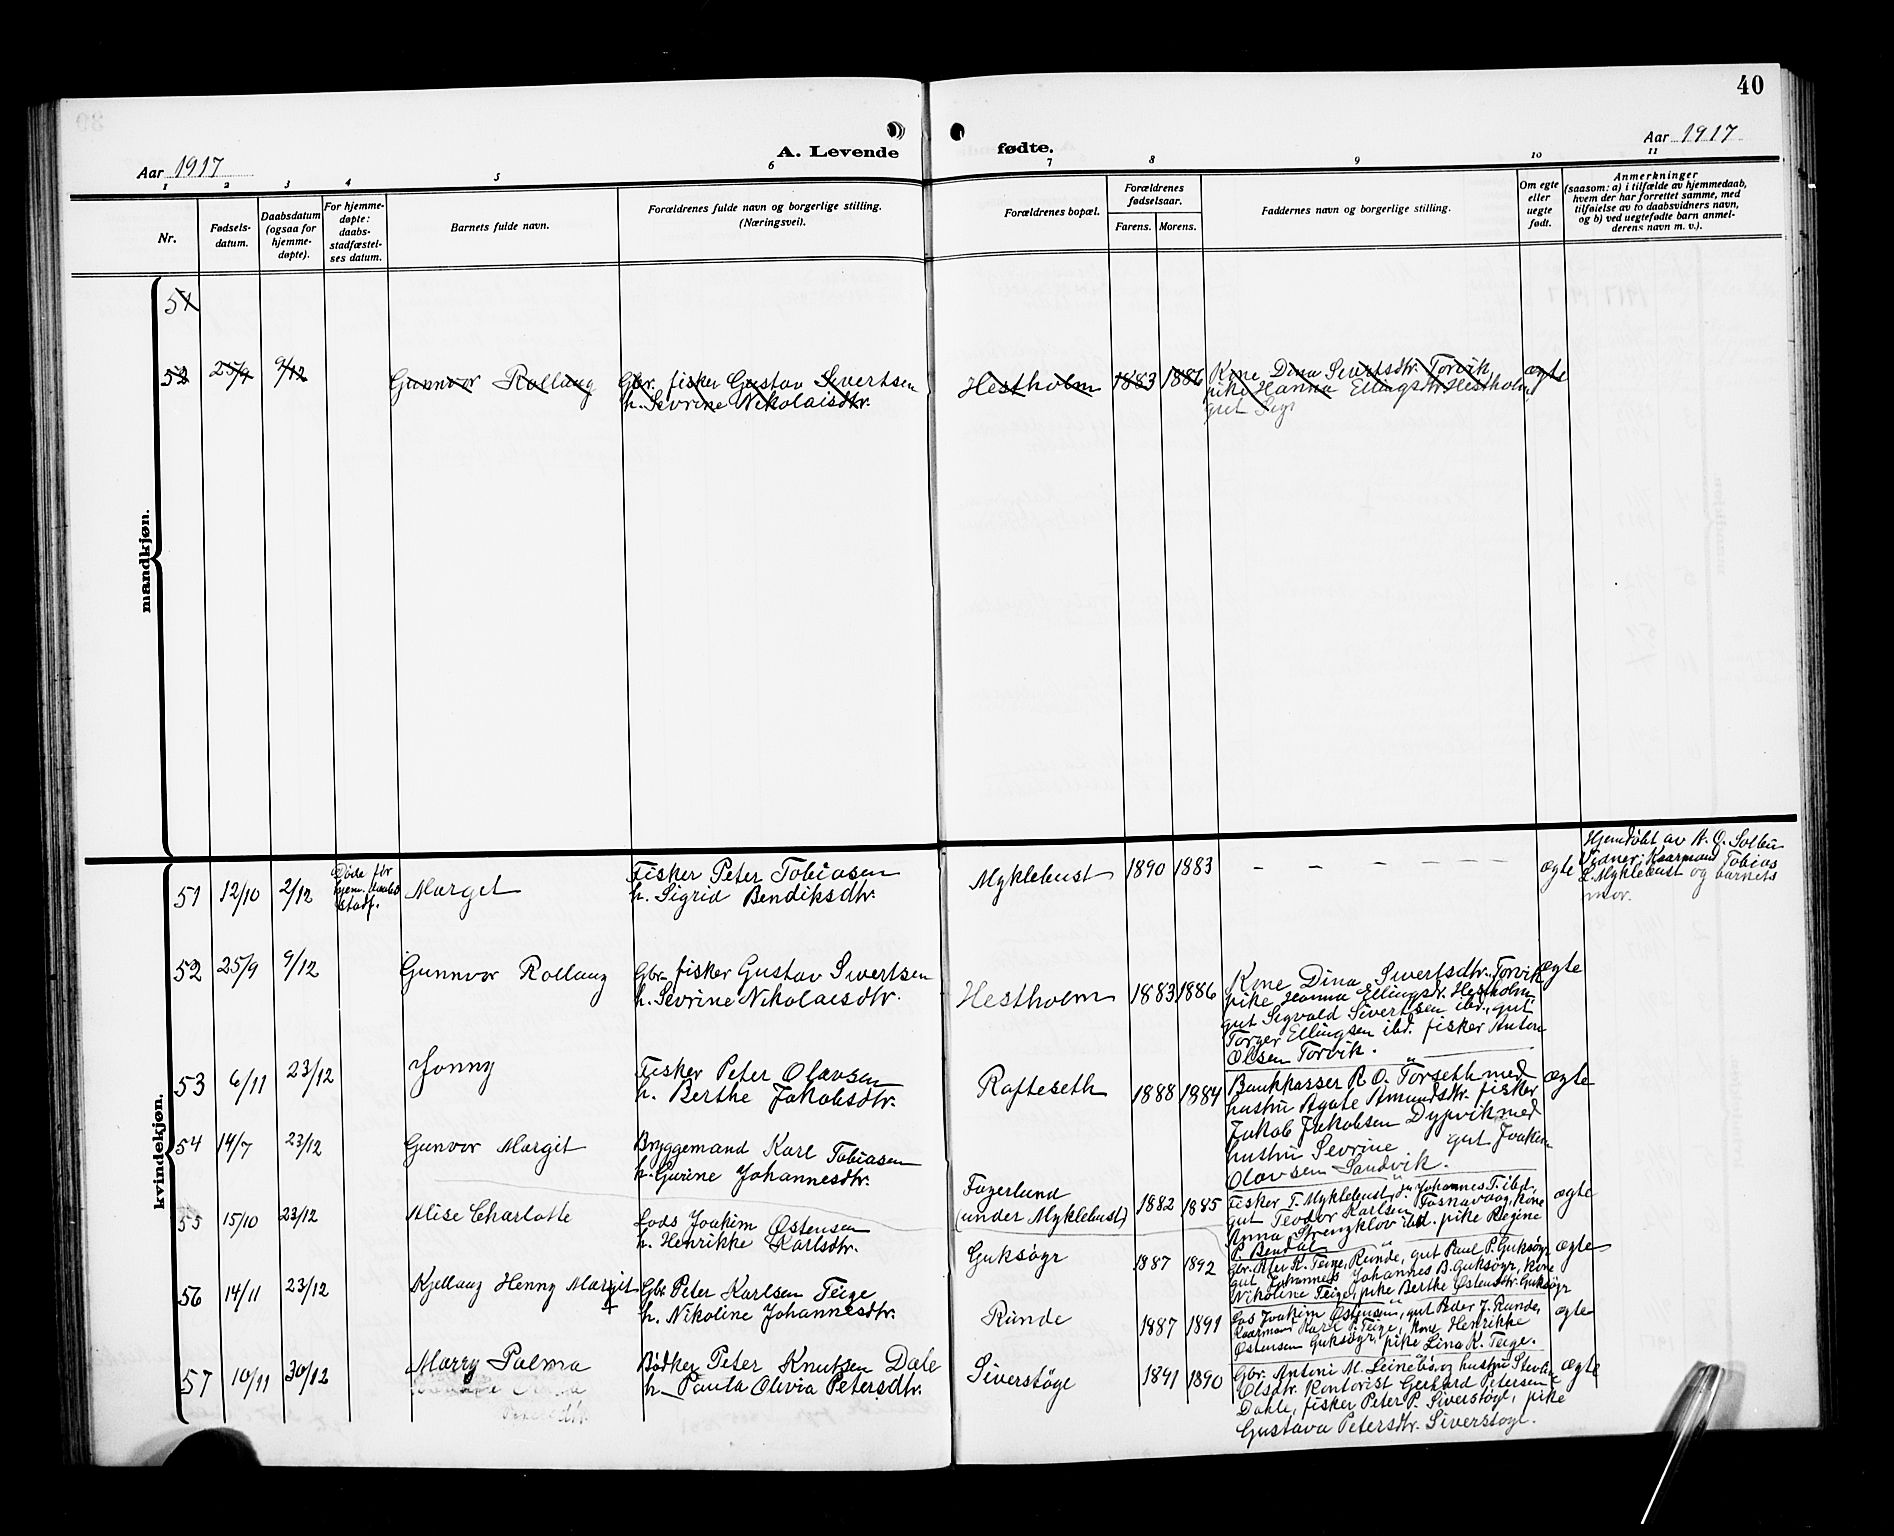 40
Aar 1917
A. Levende
fødte.
Aar 1917
1 2 3 4 5 6 7 8 9 10 11
Nr.
Fødsels-
datum.
Daabsdatum
(ogsaa for
hjemme-
døpte).
For hjemme-
døpte:
daabs-
stadfæstel-
ses datum.
Barnets fulde navn.
Forældrenes fulde navn og borgerlige stilling.
(Næringsvei).
Forældrenes bopæl.
Forældrenes
fødselsaar.
Farens. Morens.
Faddernes navn og borgerlige stilling.
Om egte
eller
uegte
født.
Anmerkninger
(saasom: a) i tilfælde av hjemmedaab,
hvem der har forrettet samme, med
tilføielse av to daabsvidners navn,
og b) ved uegtefødte barn anmel-
derens navn m. v.).
mandkjøn.
51
52 25/9 9/12 Gunnvor Rollaug
Gbr. fisker Gustav Sivertsen
h. Sevrine Nikolaisdtr.
Hestholm 1883 1886
Kone Dina Sivertsdtr. Torvik,
pike Hanna Ellingsdtr Hestholm,
gut Sig
ægte
kvindekjøn.
51 12/10 2/12
Døde før
hjem. daabs
stadf.
Marget
Fisker Peter Tobiasen
h. Sigrid Bendiksdtr.
Myklebust 1890 1883 - - - - -
ægte
Hjemdøbt av A. O. Solbu
Vidner: Kaarmand Tobias
L. Myklebust og barnets
mor.
52 25/9 9/12 Gunnvor Rollaug
Gbr. fisker Gustav Sivertsen
h. Sevrine Nikolaisdtr.
Hestholm 1883 1886
Kone Dina Sivertsdtr. Torvik
pike Hanna Ellingsdr. Hestholm
gut Sigvald Sivertsen ibd., gut
Torger Ellingsen ibd. fisker Anton
Olsen Torvik.
ægte
53 6/11 23/12 Jonny
Fisker Peter Olavsen
h. Berthe Jakobsdtr.
Rafteseth 1888 1884
Bankkasser R. O. Torseth med
hustru Agate Amundsdtr. fisker
Jakob Jakobsen Dypvik med
hustru Sevrine gut Joakim
Olavsen Sandvik.
ægte
54 14/7 23/12 Gunvor Margit
Bryggemand Karl Tobiasen
h. Gurine Johannesdtr.
Fagerlund
(under Myklebust) 1882 1885
Fisker T. Myklebust, Johannes T. ibd,
gut Teodor Karlsen Fosnavaag, kone
Anna ibd. pike Regine
P. Bendal
ægte
55 15/10 23/12 Alise Charlotte
Lods Joakim Østensen
h. Henrikke Karlsdtr.
Goksøyr 1887 1892
Gbr. Peter K. Teige, Runde, gut Paul P. Guksøyr
gut Johannes Johannes B. Guksøyr, kone
Nikoline Teige, pike Berthe Østensdtr. Guksøyr
ægte
56 14/11 23/12 Kjellaug Henny Margit
Gbr. Peter Karlsen Teige
h. Nikoline Johannesdtr.
Runde 1887 1891
Los Joakim Østensen, gut Peder J. Runde,
Kaarmand Karl P. Teige, kone Henrikke
Østensen Guksøyr, pike Lina K. Teige.
ægte
57 10/11 30/12 Marry Palma
Bødker Peter Knutsen Dale
h. Paula Olivia Petersdtr.
Siverstøge 1841 1890
Gbr. Antoni M. Leinebø, og hustru
Olsdtr. Kontorist Gerhard Petersen
Dahle, fisker Peter P. Siverstøgl, pike
Gustava Petersdtr. Siverstøgl.
ægte